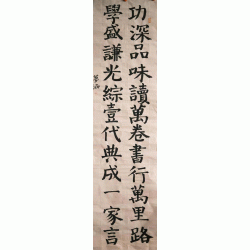 功深品味讀萬卷書行萬里路
學盛謙光綜壹代典成一家言